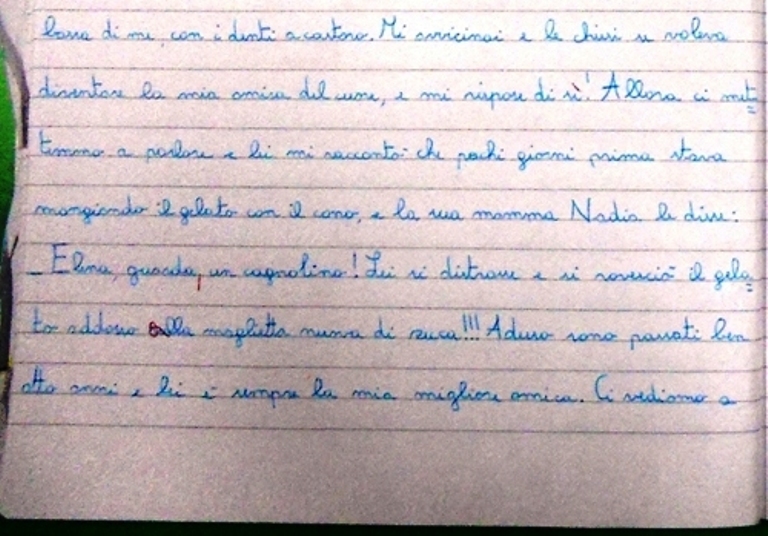 bassa di me, con i denti a castoro. Mi avvicinai e le chiesi se voleva
diventare la mia amica del cuore, e mi rispose di sì! Allora ci met=
temmo a parlare e lei mi raccontò che pochi giorni prima stava
mangiando il gelato con il cono, e la sua mamma Nadia le disse:
_ Elena, guarda, un cagnolino! Lei si distrasse e si rovesciò il gela=
to addosso alla maglietta nuova di zucca!!! Adesso sono passati ben
otto anni e lei è sempre la mia migliore amica. Ci vediamo a